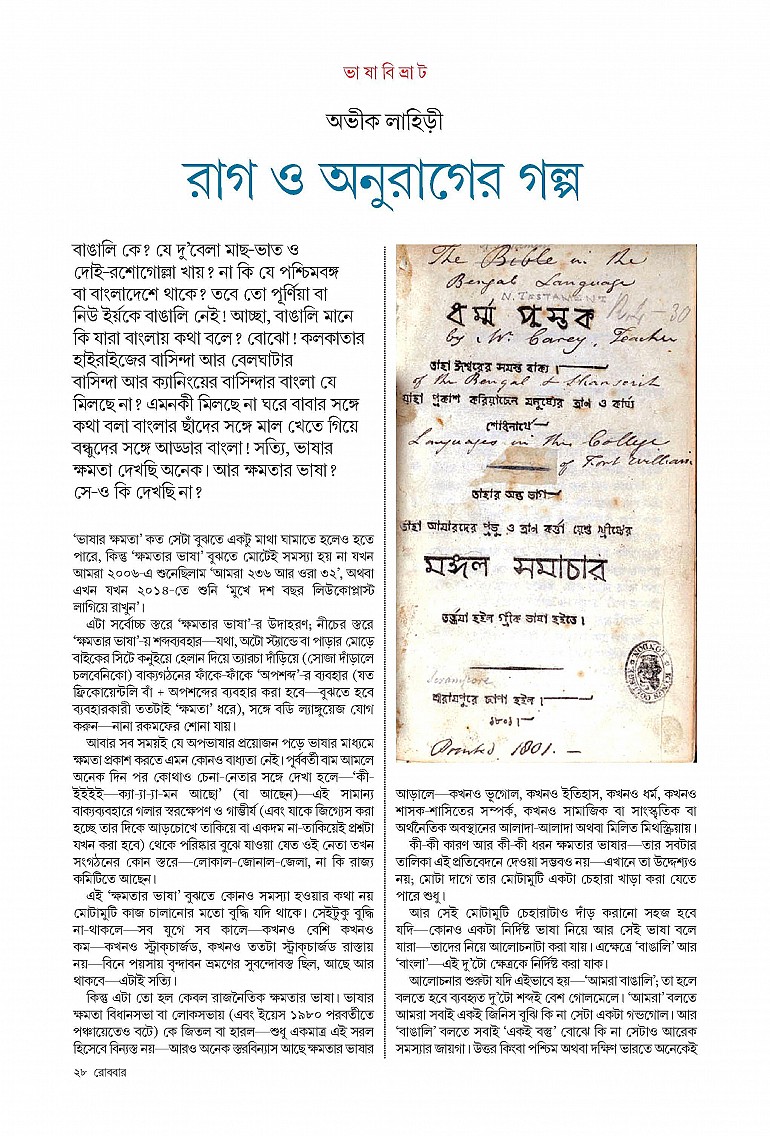 ভাষাবিভ্রাট
অভীক লাহিড়ী
রাগ ও অনুরাগের গল্প
বাঙালি কে? যে দু’বেলা মাছ-ভাত ও
দোই-রশোগোল্লা খায়? না কি যে পশ্চিমবঙ্গ
বা বাংলাদেশে থাকে? তবে তো পূর্ণিয়া বা
নিউ ইয়র্কে বাঙালি নেই! আচ্ছা, বাঙালি মানে
কি যারা বাংলায় কথা বলে? বোঝো! কলকাতার
হাইরাইজের বাসিন্দা আর বেলঘাটার
বাসিন্দা আর ক্যানিংয়ের বাসিন্দার বাংলা যে
মিলছে না? এমনকী মিলছে না ঘরে বাবার সঙ্গে
কথা বলা বাংলার ছাঁদের সঙ্গে মাল খেতে গিয়ে
বন্ধুদের সঙ্গে আড্ডার বাংলা! সত্যি, ভাষার
ক্ষমতা দেখছি অনেক। আর ক্ষমতার ভাষা?
সে-ও কি দেখছি না?
‘ভাষার ক্ষমতা’ কত সেটা বুঝতে একটু মাথা ঘামাতে হলেও হতে
পারে, কিন্তু ‘ক্ষমতার ভাষা’ বুঝতে মোটেই সমস্যা হয় না যখন
আমরা ২০০৬-এ শুনেছিলাম ‘আমরা ২৩৬ আর ওরা ৩২’, অথবা
এখন যখন ২০১৪-তে শুনি ‘মুখে দশ বছর লিউকোপ্লাস্ট
লাগিয়ে রাখুন’।
এটা সর্বোচ্চ স্তরে ‘ক্ষমতার ভাষা’-র উদাহরণ; নীচের স্তরে
‘ক্ষমতার ভাষা’-য় শব্দব্যবহার—যথা, অটো স্ট্যান্ডে বা পাড়ার মোড়ে
বাইকের সিটে কনুইয়ে হেলান দিয়ে ত্যারচা দাঁড়িয়ে (সোজা দাঁড়ালে
চলবেনিকো) বাক্যগঠনের ফাঁকে-ফাঁকে ‘অপশব্দ’-র ব্যবহার (যত
ফ্রিকোয়েন্টলি বাঁ + অপশব্দের ব্যবহার করা হবে—বুঝতে হবে
ব্যবহারকারী ততটাই ‘ক্ষমতা’ ধরে), সঙ্গে বডি ল্যাঙ্গুয়েজ যোগ
করুন—নানা রকমফের শোনা যায়।
আবার সব সময়ই যে অপভাষার প্রয়োজন পড়ে ভাষার মাধ্যমে
ক্ষমতা প্রকাশ করতে এমন কোনও বাধ্যতা নেই। পূর্ববর্তী বাম আমলে
অনেক দিন পর কোথাও চেনা-নেতার সঙ্গে দেখা হলে—‘কী-
ইইইই—ক্যা-্যা-্যা-মন আছো’ (বা আছেন)—এই সামান্য
বাক্যব্যবহারে গলার স্বরক্ষেপণ ও গাম্ভীর্য (এবং যাকে জিগ্যেস করা
হচ্ছে তার দিকে আড়চোখে তাকিয়ে বা একদম না-তাকিয়েই প্রশ্নটা
যখন করা হবে) থেকে পরিষ্কার বুঝে যাওয়া যেত ওই নেতা তখন
সংগঠনের কোন স্তরে—লোকাল-জোনাল-জেলা, না কি রাজ্য
কমিটিতে আছেন।
এই ‘ক্ষমতার ভাষা’ বুঝতে কোনও সমস্যা হওয়ার কথা নয়
মোটামুটি কাজ চালানোর মতো বুদ্ধি যদি থাকে। সেইটুকু বুদ্ধি
না-থাকলে—সব যুগে সব কালে—কখনও বেশি কখনও
কম—কখনও স্ট্রাক্‌চার্জড, কখনও ততটা স্ট্রাক্‌চার্জড রাস্তায়
নয়—বিনে পয়সায় বৃন্দাবন ভ্রমণের সুবন্দোবস্ত ছিল, আছে আর
থাকবে—এটাই সত্যি।
কিন্তু এটা তো হল কেবল রাজনৈতিক ক্ষমতার ভাষা। ভাষার
ক্ষমতা বিধানসভা বা লোকসভায় (এবং ইয়েস ১৯৮০ পরবর্তীতে
পঞ্চায়েতেও বটে) কে জিতল বা হারল—শুধু একমাত্র এই সরল
হিসেবে বিন্যস্ত নয়—আরও অনেক স্তরবিন্যাস আছে ক্ষমতার ভাষার
২৮ রোববার
The Bible in the
Bengali Language
N. TESTAMENT
ধর্ম্ম পুস্তক
by W. Carey, Teacher
তাহা ঈশ্বরের সমস্ত বাক্য।
of the Bengal & Shanscrit
যাহা প্রকাশ করিয়াচেন মনুষ্যের ত্রাণ ও কার্য্য
শোধনার্থে
Languages in the College
of Fort William
তাহার অন্ত ভাগ
তাহা আমারদের প্রভু ও ত্রাণ কর্ত্তা য়েশু খ্রীষ্টের
মঙ্গল সমাচার
তর্জমা হইল গ্রীক ভাষা হইতে।
Serampore
শ্রীরামপুরে ছাপা হইল।
১৮০১।
Printed, 1801. —
আড়ালে—কখনও ভূগোল, কখনও ইতিহাস, কখনও ধর্ম, কখনও
শাসক-শাসিতের সম্পর্ক, কখনও সামাজিক বা সাংস্কৃতিক বা
অর্থনৈতিক অবস্থানের আলাদা-আলাদা অথবা মিলিত মিথস্ক্রিয়ায়।
কী-কী কারণ আর কী-কী ধরন ক্ষমতার ভাষার—তার সবটার
তালিকা এই প্রতিবেদনে দেওয়া সম্ভবও নয়—এখানে তা উদ্দেশ্যও
নয়; মোটা দাগে তার মোটামুটি একটা চেহারা খাড়া করা যেতে
পারে শুধু।
আর সেই মোটামুটি চেহারাটাও দাঁড় করানো সহজ হবে
যদি—কোনও একটা নির্দিষ্ট ভাষা নিয়ে আর সেই ভাষা বলে
যারা—তাদের নিয়ে আলোচনাটা করা যায়। এক্ষেত্রে ‘বাঙালি’ আর
‘বাংলা’—এই দু’টো ক্ষেত্রকে নির্দিষ্ট করা যাক।
আলোচনার শুরুটা যদি এইভাবে হয়—‘আমরা বাঙালি’; তা হলে
বলতে হবে ব্যবহৃত দু’টো শব্দই বেশ গোলমেলে। ‘আমরা’ বলতে
আমরা সবাই একই জিনিস বুঝি কি না সেটা একটা গন্ডগোল। আর
‘বাঙালি’ বলতে সবাই ‘একই বস্তু’ বোঝে কি না সেটাও আরেক
সমস্যার জায়গা। উত্তর কিংবা পশ্চিম অথবা দক্ষিণ ভারতে অনেকেই